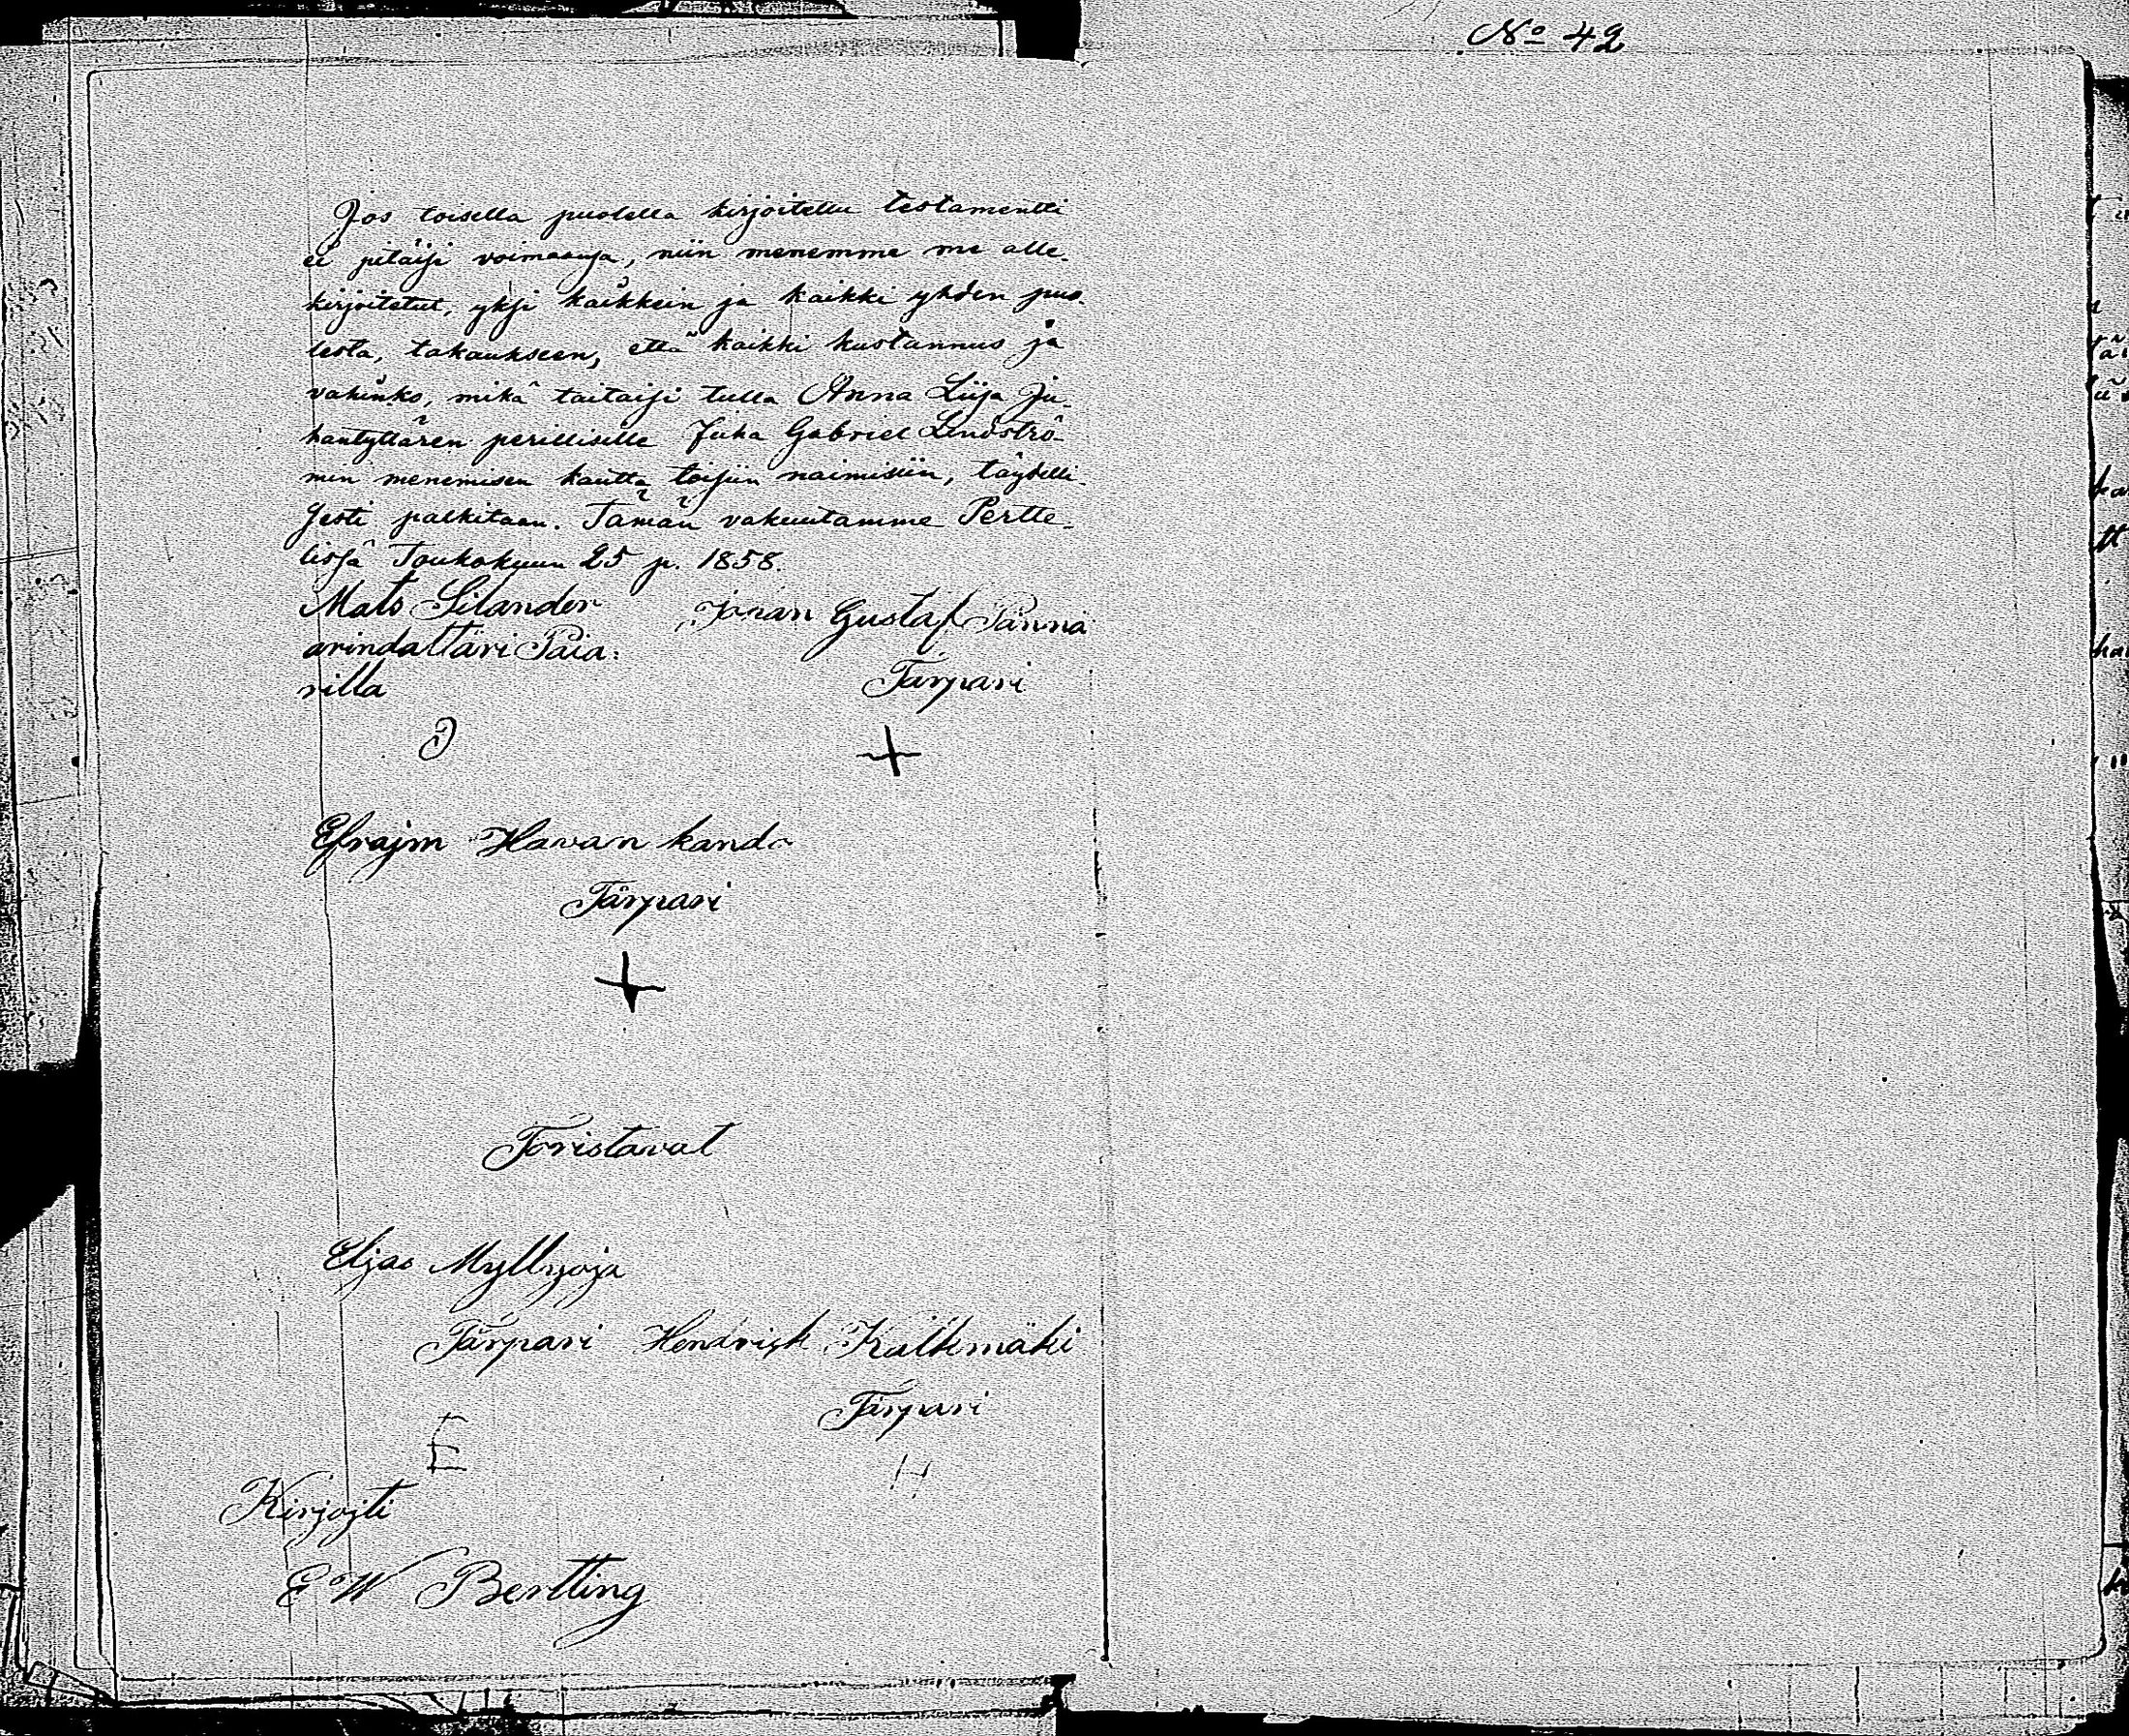 No 42
Jos toisella puolella kirjoitettu testamentti
ei pitäisi voimaansa, niin menemme me alle-
kirjoitetut, yksi kaikkein ja kaikki yhden puo-
lesta, takaukseen, että kaikki kustannus ja
vahinko, mikä taitaisi tulla Anna Liisa Ju-
hantyttären perillisille Juha Gabriel Lindströ-
min menemisen kautta toisiin naimisiin, täydelli-
sesti palkitaan. Tämän vakuutamme Pertte-
lissä Toukokuun 25 p. 1858.
Mats Silander Johan Gustaf Pännä
arindattäri Paia:
rilla Tärpari
+
Efrajm Havan kanda
Tårpari
+
Toristavat
Eljas Myllyoja
Tårpari Hendrick Kalkmäki
Tårpari
E H
Kirjojti
E W Bertting